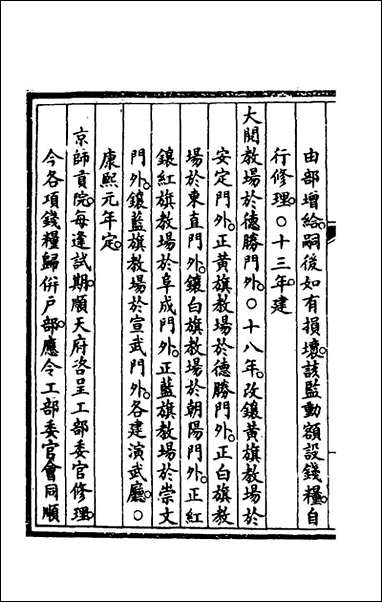 由部增給。嗣後如有損壞。該監動額設錢糧。自
行修理。○十三年建
大閱教場於德勝門外。○十八年。改鑲黃旗教場於
安定門外。正黃旗教場於德勝門外。正白旗教
場於東直門外。鑲白旗教場於朝陽門外。正紅
鑲紅旗教場於阜成門外。正藍旗教場於崇文
門外。鑲藍旗教場於宣武門外。各建演武廳。○
康熙元年定。
京師貢院。每逢試期。順天府咨呈工部委官修理。
今各項錢糧歸併戶部。應令工部委官會同順